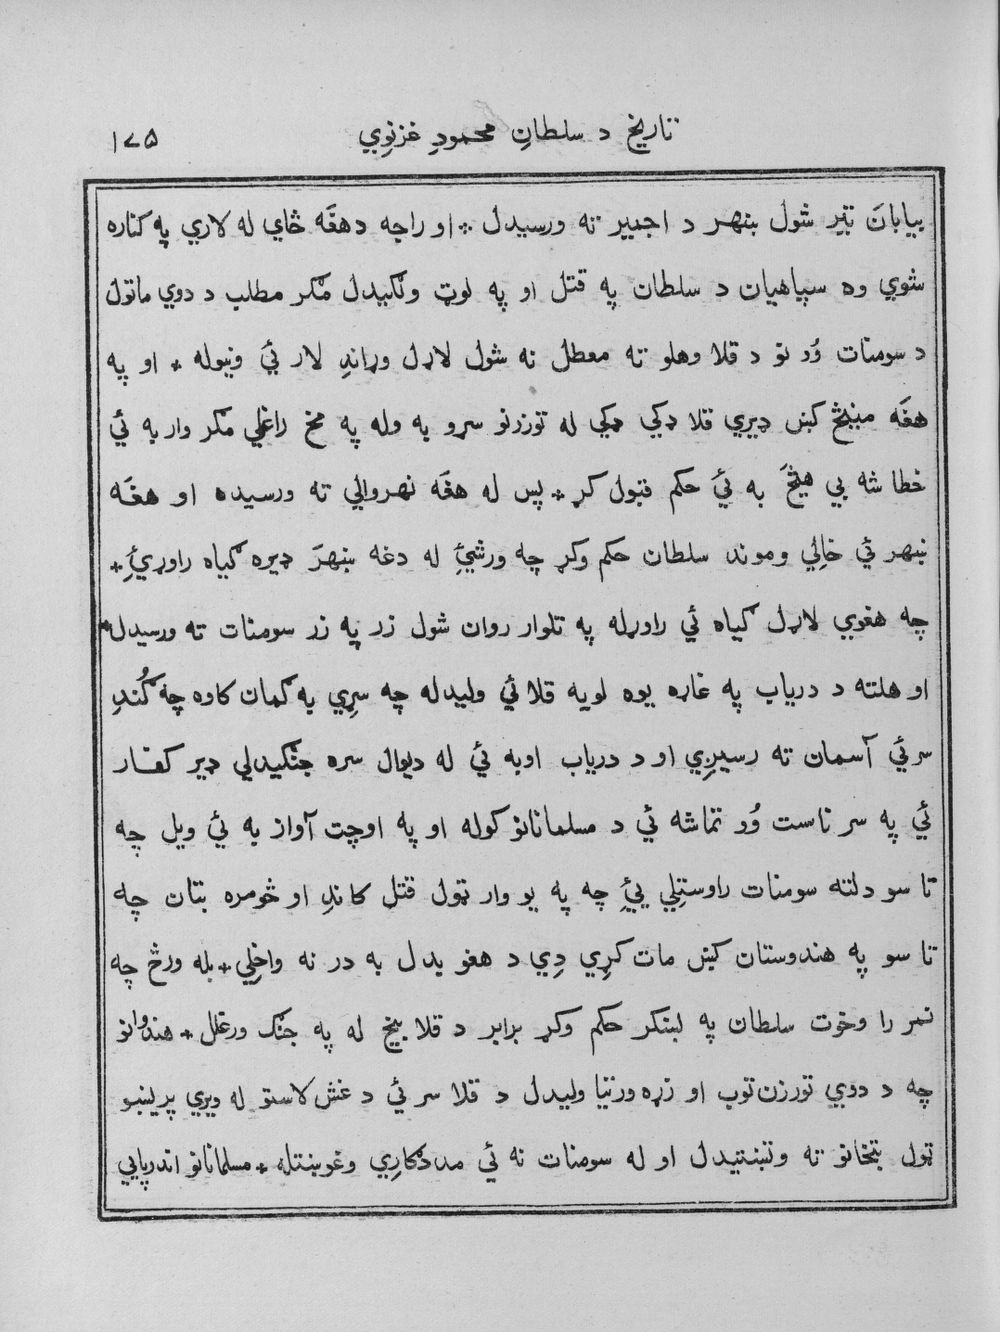 تاریخ د سلطانِ محمودِ غزنوِي ١٧٥
بیابانَ تیر شول ښهر د اجمیر ته ورسیدل ؞ او راجه دهغَه ځاي له لاري په کناره
شوي وه سپاهیان د سلطان په قتل او په لوټ ونګیدل مګر مطلب د دوي ماتول
د سومنات وُد نو د قلا وهلو ته معطل نه شول لاړل وړاندِ لار ئي ونیوله ٭ او په
هغَه مینځ کښ ډیري قلا ډکي ډکي له تورزنو سړو په وله په مخ راغلي مګر وار به ئي
خطا شه بي هیڅَ به ئي حکم قبول کړ ٭ پس له هغَه نهروالي ته ورسیده او هغَه
ښهر ئي خالي وموند سلطان حکم وکړ چه ورشئِ له دغه ښهرَ ډیره ګیاه راوړيِ ٭
چه هغوي لاړل ګیاه ئي راوړله په تلوار روان شول زر په زر سومنات ته ورسیدل ٭
او هلته د دریاب په غاړه یوه لویه قلا ئي ولیدله چه سړِي به ګمان کاوه چه ګُندِ
سر ئي آسمان ته رسیږِي او د دریاب اوبه ئي له دیوال سره جنګیدلي ډیر کفار
ئي په سر ناست وُو تماشه ئي د مسلمانانو کوله او په اوچت آواز به ئي ویل چه
تا سو دلته سومنات راوستلِي یئِ چه په یو وار ټول قتل کاندِ او څومره بتان چه
تا سو په هندوستان کښ مات کړِي دِي د هغو بدل به در نه واخلِي ٭ بله ورځ چه
نمر را وخوت سلطان په لښکر حکم وکړ برابر د قلا بیخ له په جنګ ورغلل ٭ هندوانو
چه د دوي تورزن توب او زړه ورتیا ولیدل د قلا سر ئي د غش لاستو له ویرِي پریښو
ټول بتخانو ته وتښتیدل او له سومنات نه ئي مددګارِي وغوښتله ٭ مسلمانانو اندرپایي